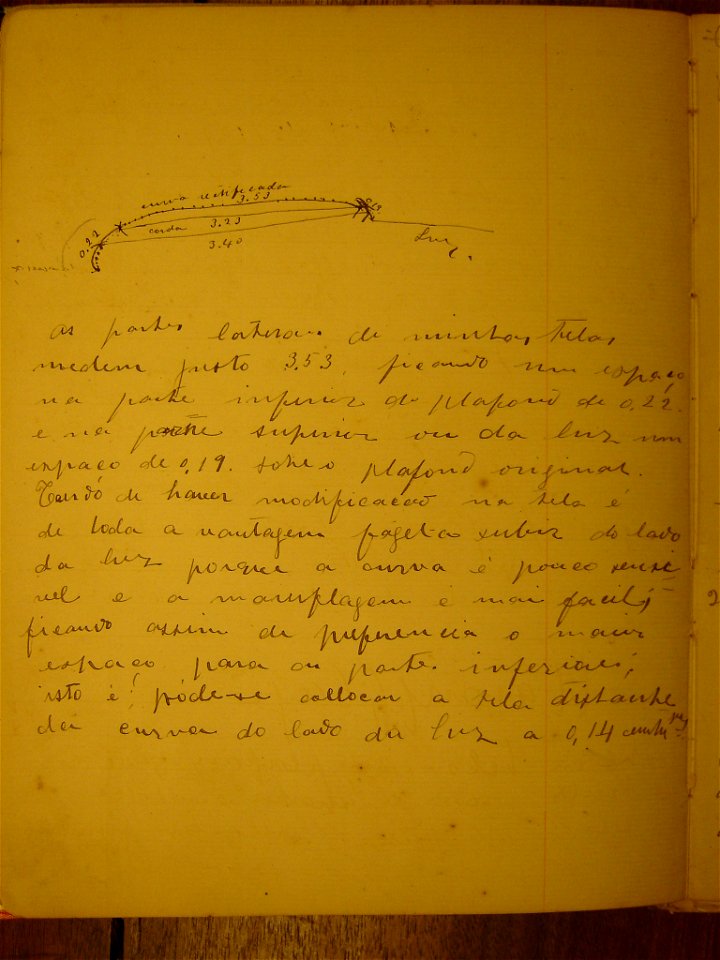 curva rectificada
3.53
0.19
0.22
corda 3.23
3.40
Luz
As partes lateraes de minhas telas
medem justo 3.53. ficando um espaço
na parte inferior do plafond de 0,22.
e na parte superior ou da luz um
espaço de 0,19. sobre o plafond original.
Tendo de haver modificação na tela é
de toda a vantagem fazel-a subir do lado
da luz porque a curva é pouco sensi
vel e a maruflagem é mai facil,
ficando assim de preferencia o maior
espaço para as partes inferiores;
isto é; póde-se collocar a tela distante
da curva do lado da luz a 0,14